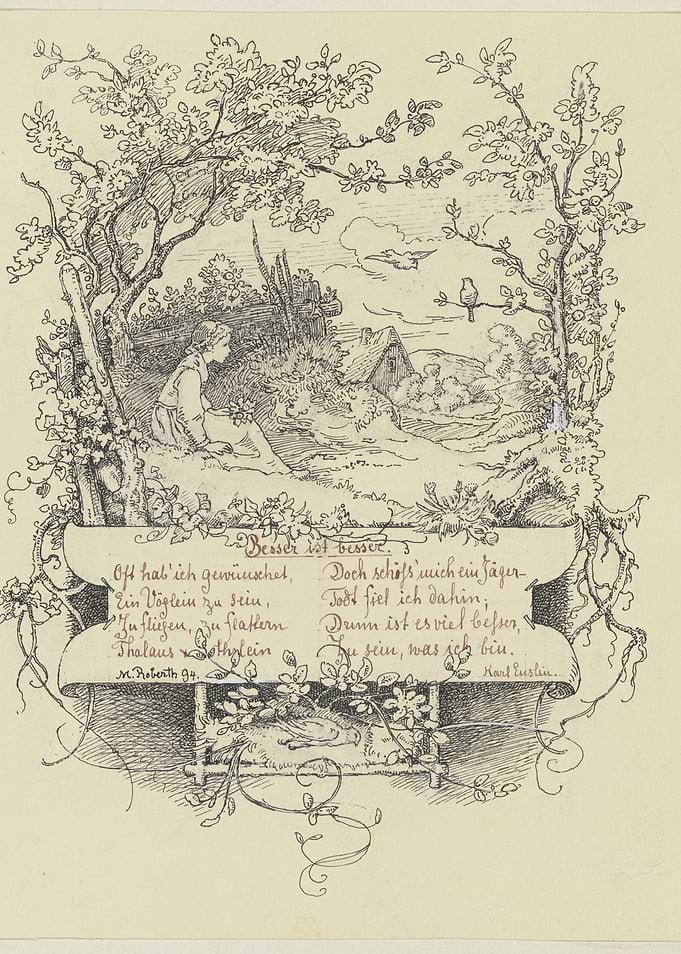 Besser ist besser.
Oft hab' ich gewünschet,
Ein Vöglein zu sein,
Zu fliegen, zu flattern
Thalaus
Doch schöss' mich ein Jäger-
Todt fiel ich dahin;
Drum ist es viel besser,
Zu sein, was ich bin.
M. Roberth 94.
Karl Enslin.